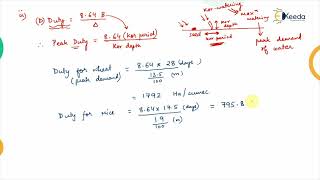 ii) (D) Duty = 8.64 B / Δ
∴ Peak Duty = 8.64 (Kor period) / Kor depth
Kor-watering
max^m watering
Kor depth
seed
Kor period
peak demand of water
Duty for wheat = 8.64 × 28 (days) / 13.5/100 (m)
= 1792 Ha/cumec
Duty for rice = 8.64 × 17.5 (days) / 19/100 (m) = 795.8
Keeda